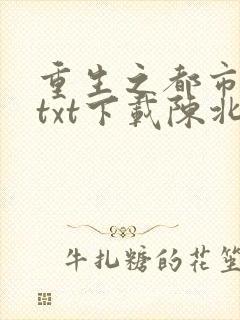 重生之都市
txt下载陈北
牛扎糖的花笙